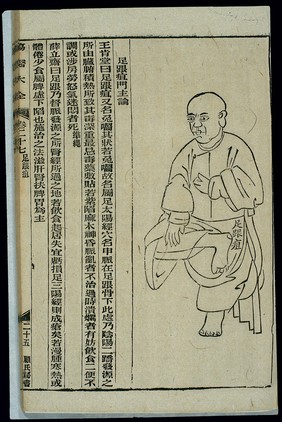 足跟疽門主論
王肯堂曰足跟疽又名兔囓其狀若兔囓故名屬足太陽經穴名申脈在足跟骨下此處乃陰陽二蹻發源之
所由臟腑積熱所致其毒深重最忌毒藥敷貼若紫陷麻木神昏脈亂者不治過時潰爛者有妨飲食二便不
調或涉房勞怒氣迷悶者死 準繩
薛立齋曰足跟乃督脈發源之所腎經所過之地若飲食起居失宜虧損足三陽經則成瘡矣若漫腫寒熱或
體倦少食屬脾虛下陷也施治之法滋肝腎扶脾胃為主
瘍醫大全 卷二十七 足跟疽
二十五
顧氏秘書
足跟疽